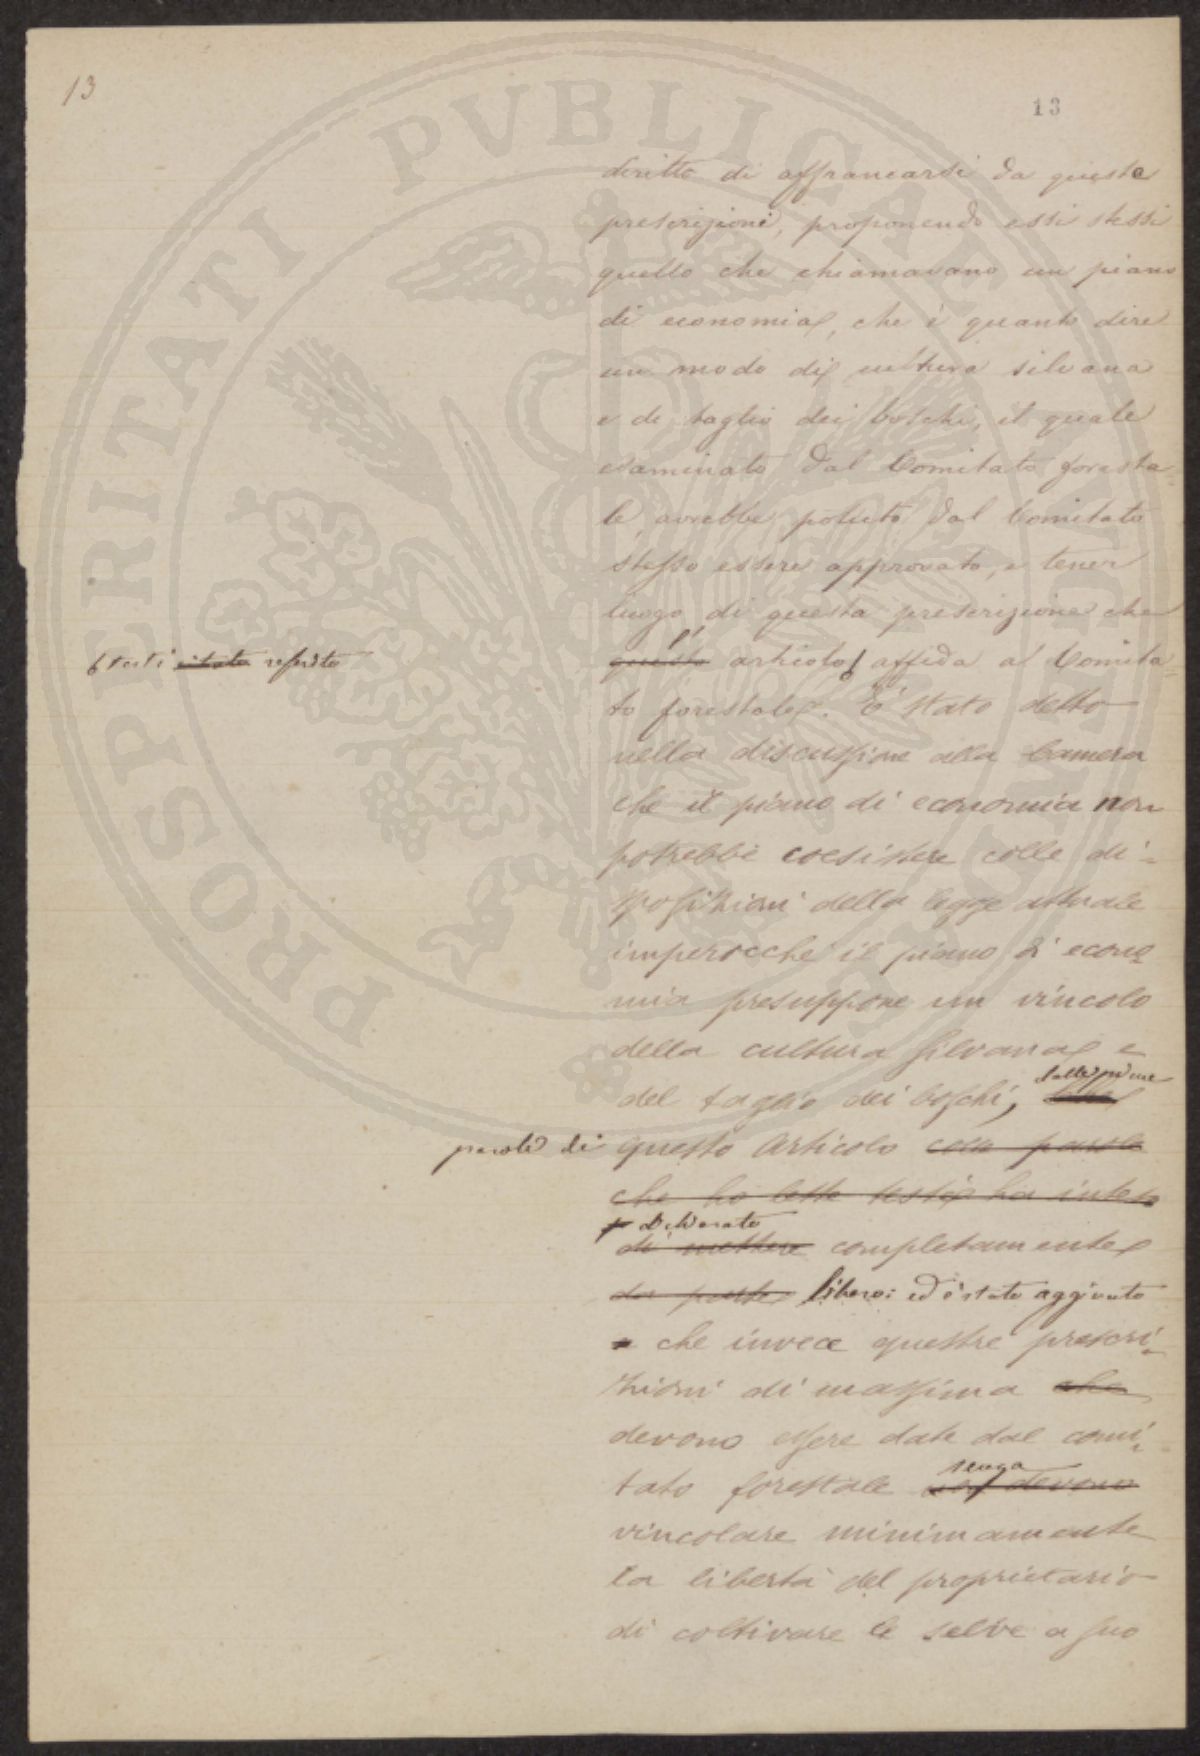 13
13
diritto di affrancarsi da queste
prescrizioni, proponendo essi stessi
quello che chiamavano un piano
di economia, che è quanto dire
un modo di cultura silvana
e di taglio dei boschi, il quale
esaminato dal Comitato foresta=
le, avrebbe potuto dal Comitato
stesso essere approvato, e tener
luogo di questa prescrizione che
l'
questo articolo affida al Comita=
testi citato
to forestale. È stato detto
nella discussione alla Camera
che il piano di economia non
potrebbe coesistere colle di=
sposizioni della legge attuale
imperocchè il piano di econo=
mia presuppone un vincolo
della cultura silvana e
del taglio dei boschi,
parole di
questo articolo colle parole
che ho lette testè ha inteso
dichiarato
di mettere completamente
da parte libero: ed è stato aggiunto
e che invece queste prescri=
zioni di massima che
devono essere date dal comi=
senza
tato forestale non devono
vincolare minimamente
la libertà del proprietario
di coltivare le selve a suo
PROSPERITATI PVBLICAE